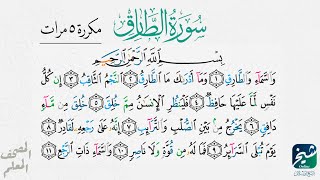 سورة الطارق
مكررة ٥ مرات
بسم الله الرحمن الرحيم
والسماء والطارق ١ وما أدراك ما الطارق ٢ النجم الثاقب ٣ إن كل
نفس لما عليها حافظ ٤ فلينظر الإنسان مم خلق ٥ خلق من ماء
دافق ٦ يخرج من بين الصلب والترائب ٧ إنه على رجعه لقادر ٨
يوم تبلى السرائر ٩ فما له من قوة ولا ناصر ١٠ والسماء ذات الرجع ١١
المصحف المعلم
شيخ